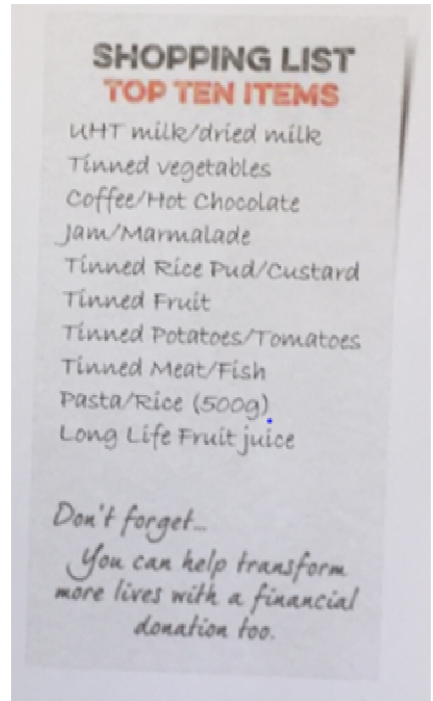 SHOPPING LIST
TOP TEN ITEMS
UHT milk/dried milk
Tinned vegetables
Coffee/Hot Chocolate
Jam/Marmalade
Tinned Rice Pud/Custard
Tinned Fruit
Tinned Potatoes/Tomatoes
Tinned Meat/Fish
Pasta/Rice (500g)
Long Life Fruit juice
Don't forget...
You can help transform
more lives with a financial
donation too.